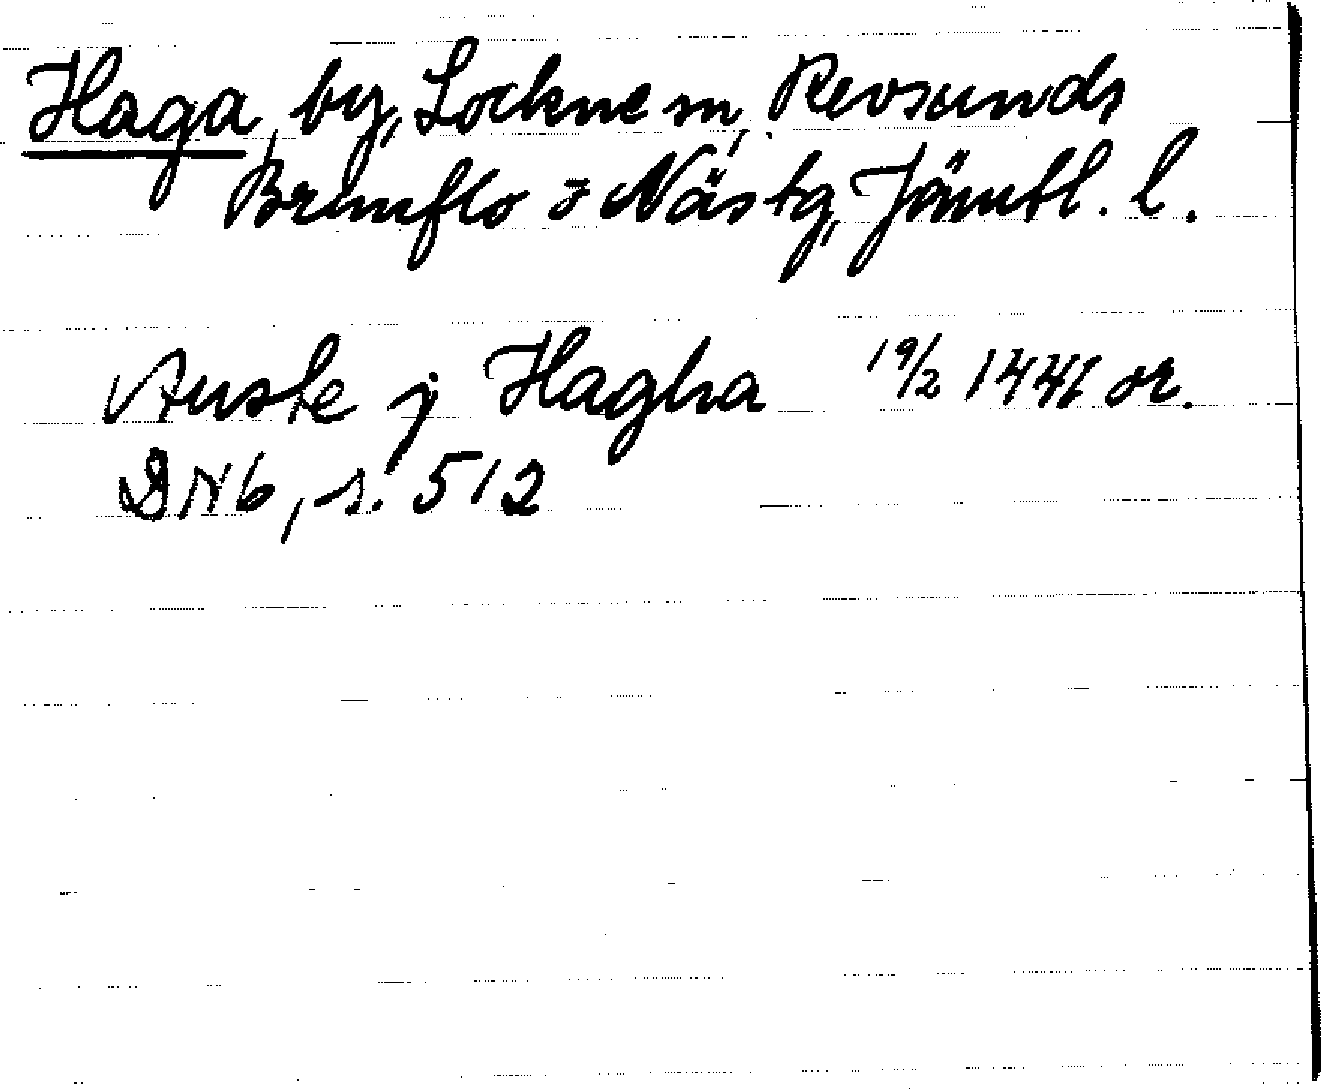 Haga, by, Lockne sn, Revsunds
Brunflo o Näs tg, Jämtl. l.
Auste j Hagha 19/2 1446 or.
DN 6, s. 512